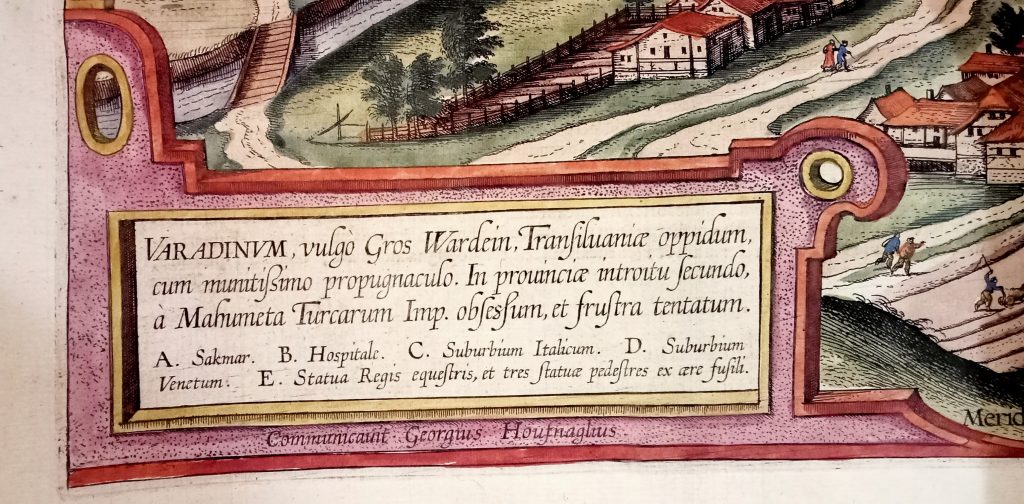 VARADINVM, vulgò Gros Wardein, Tranſiluaniæ oppidum,
cum munitiſsimo propugnaculo. In prouinciæ introitu ſecundo,
à Mahumeta Turcarum Imp. obſeſsum, et fruſtra tentatum.
A. Sakmar. B. Hospitale. C. Suburbium Italicum. D. Suburbium
Venetum. E. Statua Regis equeſtris, et tres ſtatuæ pedeſtres ex ære fuſili.
Communicauit Georgius Houfnaglius
Merid